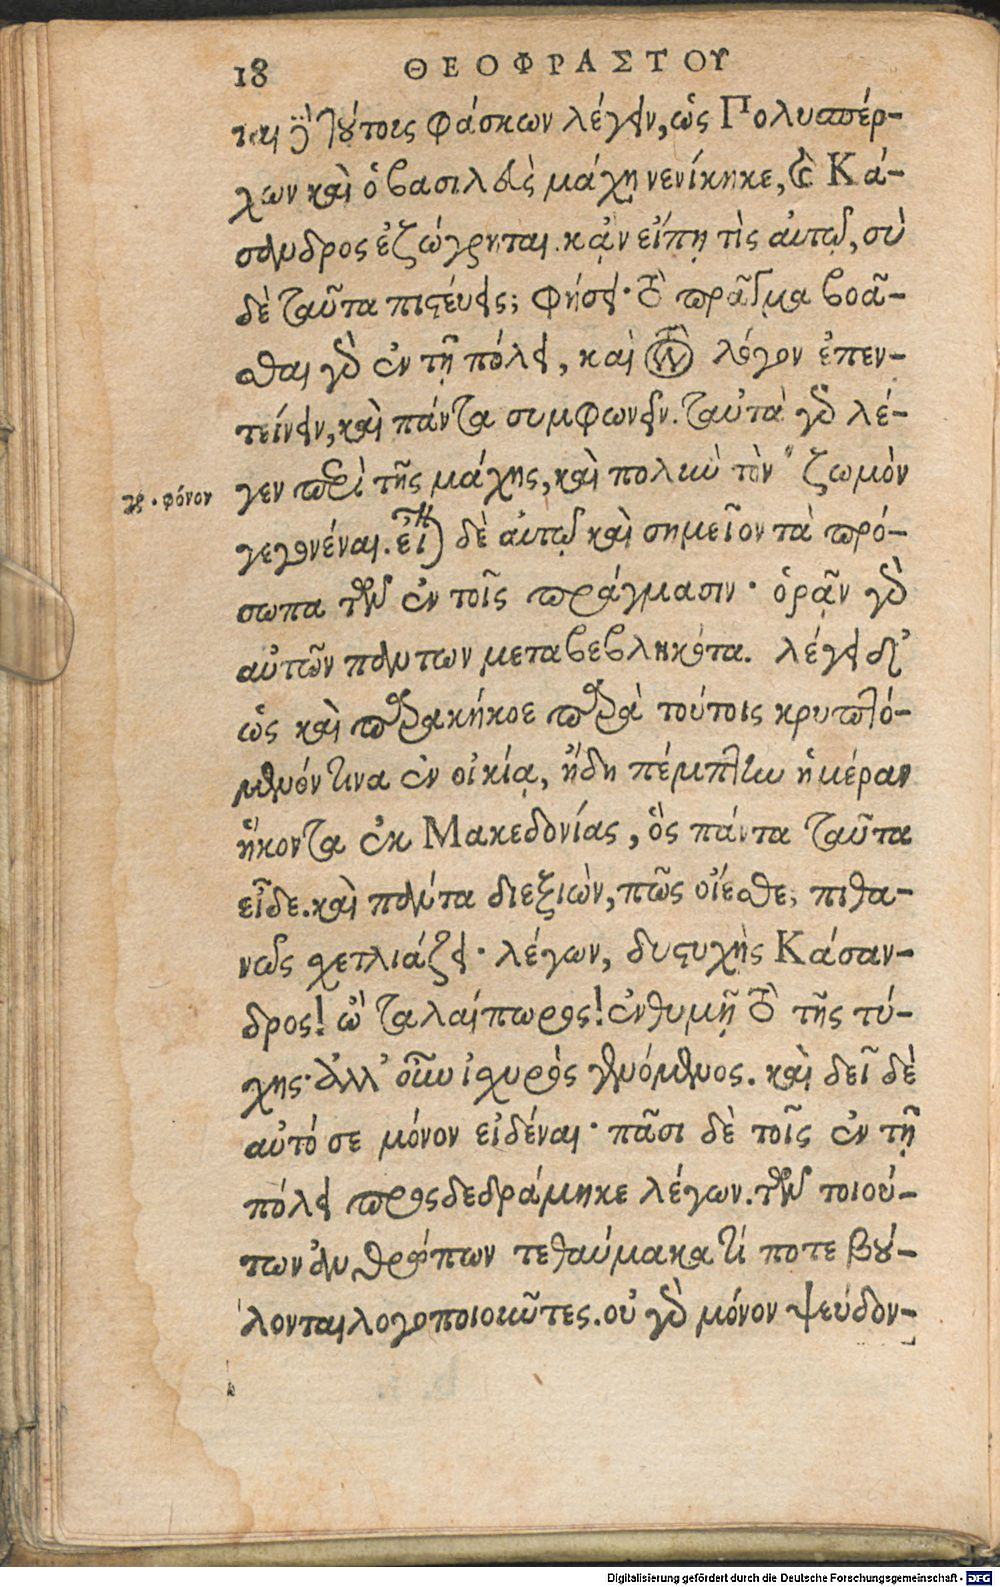 18 ΘΕΟΦΡΑΣΤΟΥ
ται ὑπὸ τούτοις φάσκων λέγειν, ὡς Πολυσπέρ-
χων καὶ ὁ βασιλεὺς μάχῃ νενίκηκε, καὶ Κά-
σανδρος ἐζώγρηται. κᾂν εἴπῃ τὶς αὐτῷ, σὺ
δὲ ταῦτα πιστεύεις; φήσει· τὸ πρᾶγμα βοᾶ-
σθαι γὰρ ἐν τῇ πόλει, καὶ τὸν λόγον ἐπεν-
τείνειν, καὶ πάντα συμφωνεῖν. ταὐτὰ γὰρ λέ-
γεν περὶ τῆς μάχης, καὶ πολὺν τὸν " ζωμὸν
γρ. φόνον
γεγονέναι. εἶναι δὲ αὐτῷ καὶ σημεῖον τὰ πρό-
σωπα τῶν ἐν τοῖς πράγμασιν· ὁρᾷν γὰρ
αὐτῶν πάντων μεταβεβληκότα. λέγει δ'
ὡς καὶ παρακήκοε παρὰ τούτοις κρυπτό-
μενόν τινα ἐν οἰκίᾳ, ἤδη πέμπτην ἡμέραν
ἥκοντα ἐκ Μακεδονίας, ὃς πάντα ταῦτα
εἶδε. καὶ πάντα διεξιὼν, πῶς οἴεσθε, πιθα-
νῶς σχετλιάζει· λέγων, δυστυχὴς Κάσαν-
δρος! ὢ ταλαίπωρος! ἐνθυμῇ τὸ τῆς τύ-
χης· ἀλλ' οὖν ἰσχυρὸς γενόμενος. καὶ δεῖ δὲ
αὐτό σε μόνον εἰδέναι· πᾶσι δὲ τοῖς ἐν τῇ
πόλει προσδεδράμηκε λέγων. τῶν τοιού-
των ἀνθρώπων τεθαύμακα τί ποτε βού-
λονται λογοποιοῦντες. οὐ γὰρ μόνον ψεύδον-
Digitalisierung gefördert durch die Deutsche Forschungsgemeinschaft - DFG